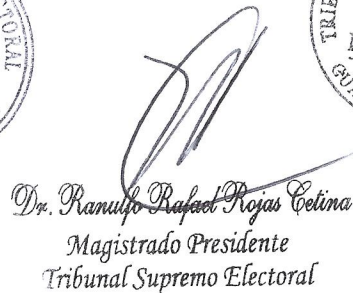 TORAL
TRIB
GU
Dr. Ranulfo Rafael Rojas Cetina
Magistrado Presidente
Tribunal Supremo Electoral